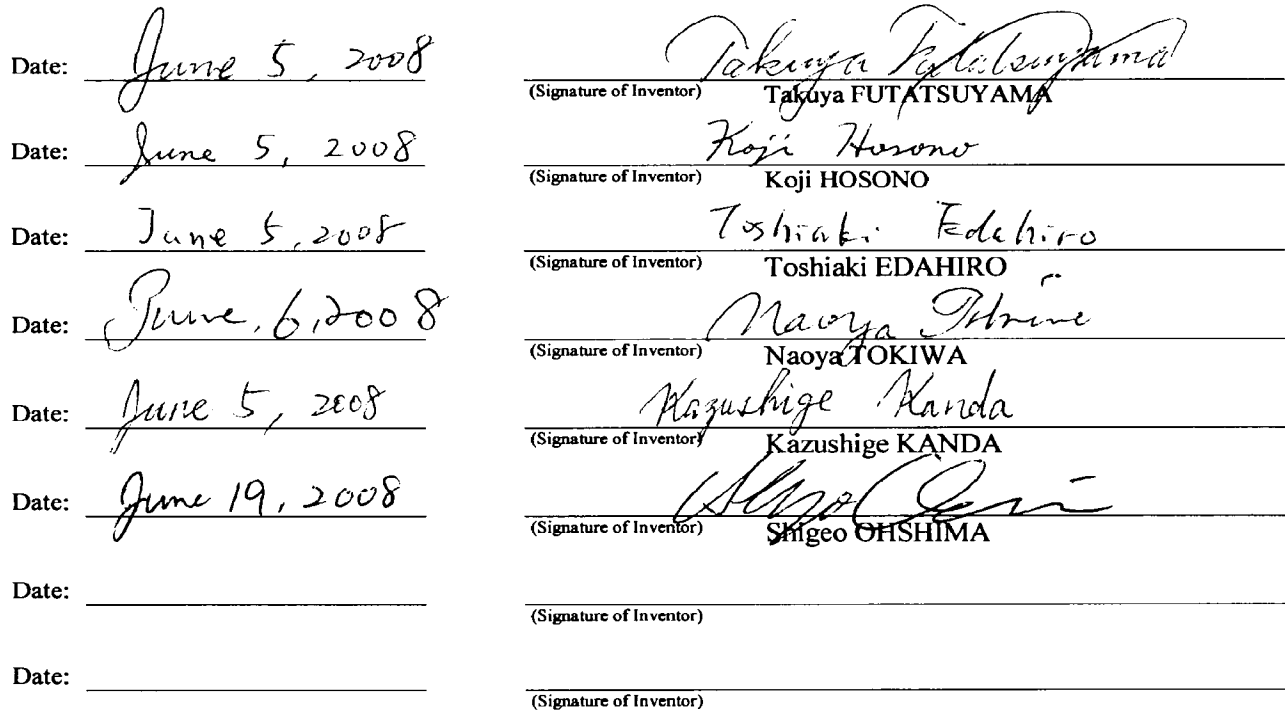 Date: June 5, 2008 Takuya Futatsuyama
(Signature of Inventor) Takuya FUTATSUYAMA
Date: June 5, 2008 Koji Hosono
(Signature of Inventor) Koji HOSONO
Date: June 5, 2008 Toshiaki Edahiro
(Signature of Inventor) Toshiaki EDAHIRO
Date: June, 6, 2008 Naoya
(Signature of Inventor) Naoya TOKIWA
Date: June 5, 2008 Kazushige Kanda
(Signature of Inventor) Kazushige KANDA
Date: June 19, 2008
(Signature of Inventor) Shigeo OHSHIMA
Date:
(Signature of Inventor)
Date:
(Signature of Inventor)